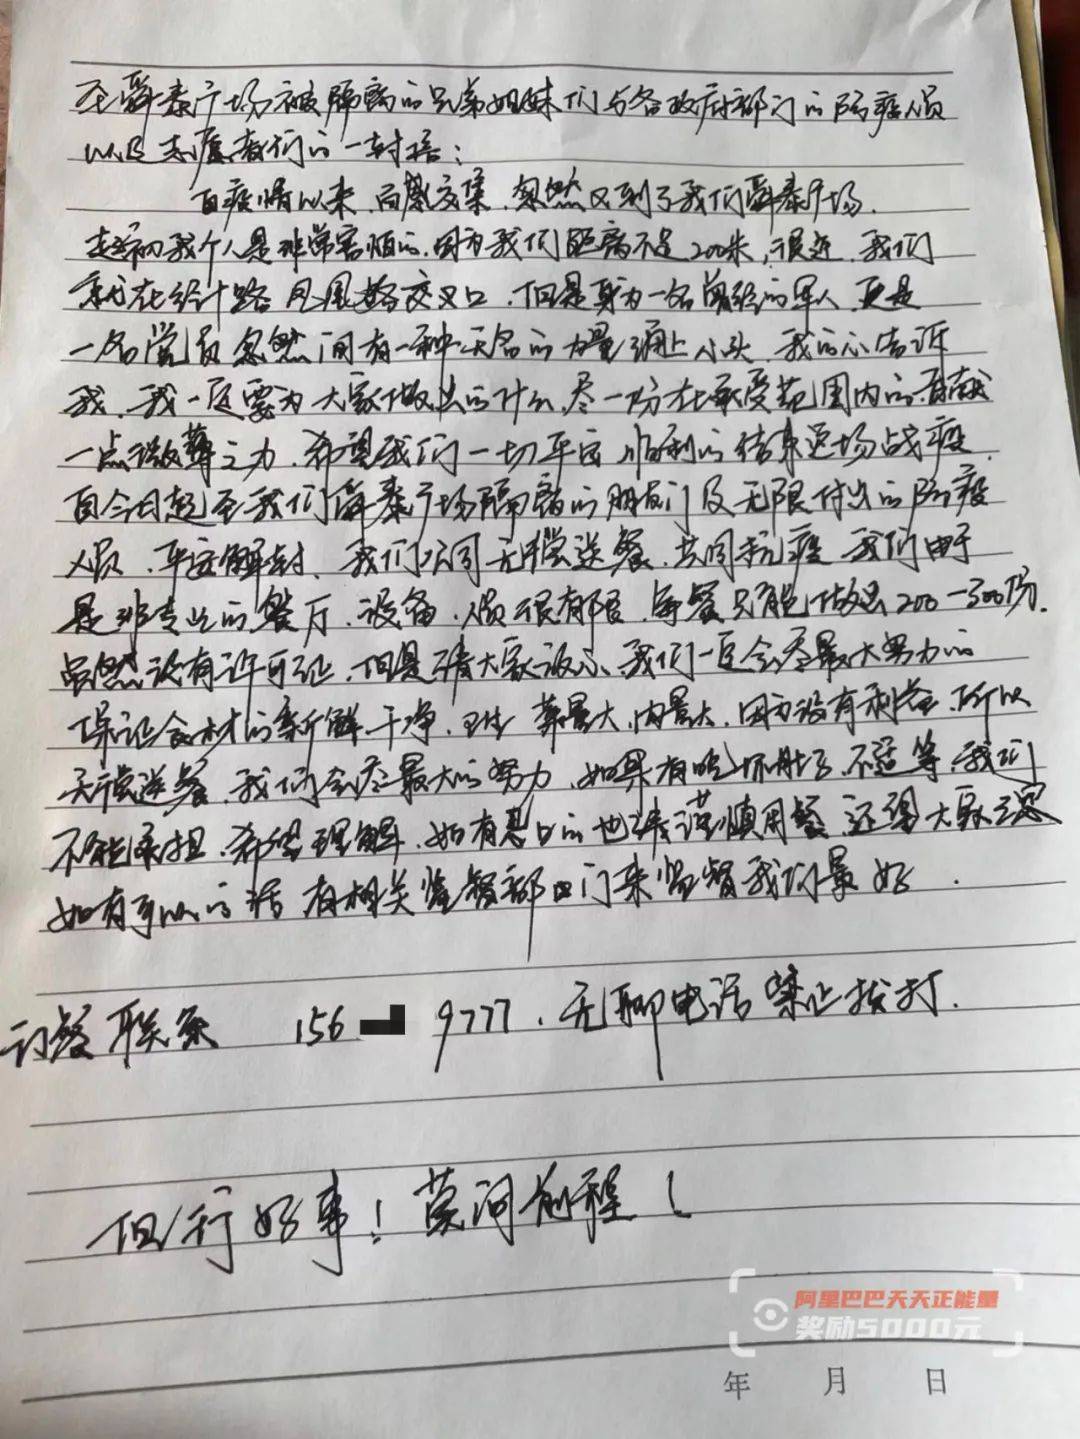 至舜泰广场被隔离的兄弟姐妹们与各政府部门的防疫人员
以及志愿者们的一封信：
自疫情以来，百感交集，忽然又到了我们舜泰广场．
起初我个人是非常害怕的，因为我们距离不足200米，很近，我们
就在经十路凤凰路交叉口，但是身为一名曾经的军人，更是
一名党员忽然间有一种无名的力量涌上心头，我的心告诉
我，我一定要为大家做出的什么，尽一份在承受范围内的，贡献
一点微薄之力，希望我们一切平安顺利的结束这场战疫．
自今日起至我们舜泰广场隔离的朋友们及无限付出的防疫
人员，平安解封，我们公司无偿送餐，共同抗疫，我们由于
是非专业的餐厅，设备，人员很有限，每餐只能做出200－300份．
虽然没有许可证，但是请大家放心，我们一定会尽最大努力的
保证食材的新鲜干净，卫生，菜量大，肉量大，因为没有利益，所以
无偿送餐，我们会尽最大的努力，如果有吃坏肚子，不适等，我们
不能承担，希望理解，如有忌口的也请谨慎用餐，还望大家注意
如有可以的话有相关监督部门来监督我们最好．
订餐联系 156 9777．无聊电话禁止拨打．
但行好事！莫问前程！
阿里巴巴天天正能量
奖励5000元
年 月 日